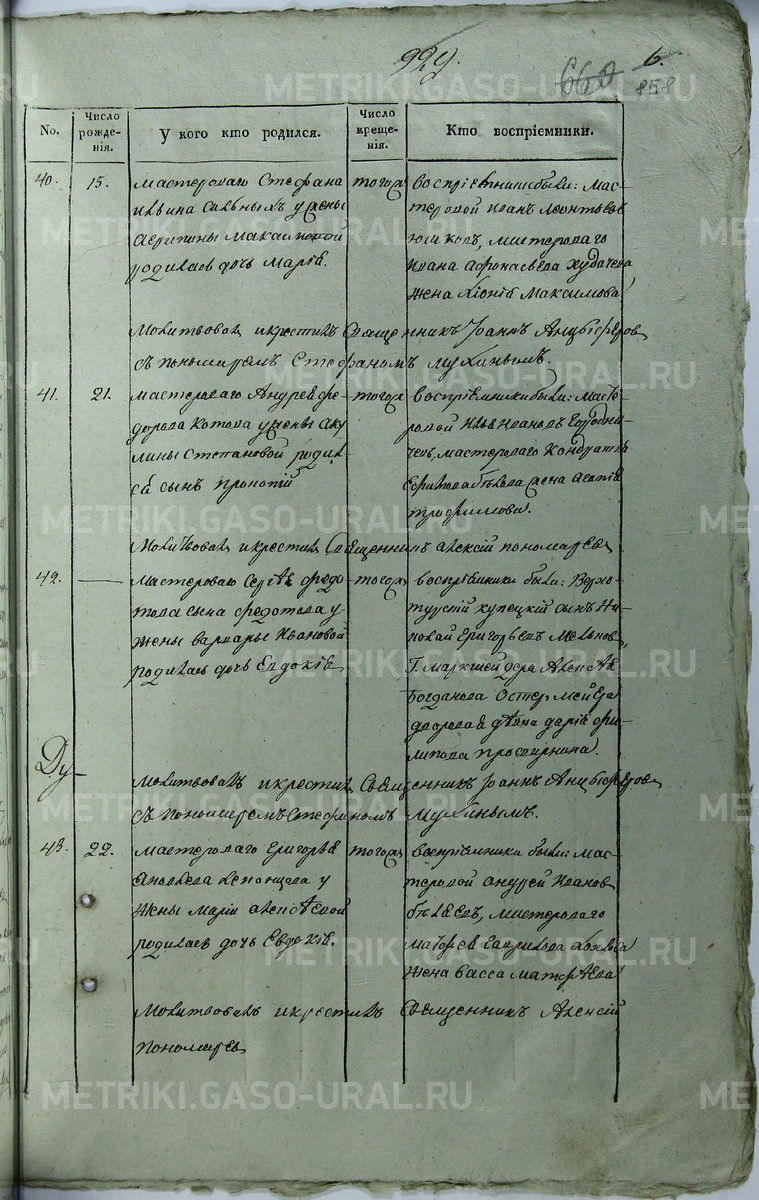 929.
6.
660
858
No.
Число рожденія.
У кого кто родился.
Число крещенія.
Кто воспріемники.
40.
15.
мастероваго Стефана
Ильина у жены
Агрипины
родилась дочь Марія.
тогож
воспріемники были: мас-
теровой Иванъ Леонтьевъ
мастероваго
Ивана Афонасьева
жена Хіонія Максимова
Молитвовалъ и крестилъ Священникъ Іоаннъ Анцыферов
съ пономаремъ Стефаномъ Мухинымъ.
41.
21.
мастероваго Андрея Фе-
дорова Котова у жены Аку
лины Степановой родил
ся сынъ Прокопій
тогож
воспріемники были: Масте
ровой Илья Ивановъ
мастероваго Кондратія
жена Агафія
Трофимова.
Молитвовал и крестил Священникъ Алексій Пономарев
42.
мастероваго Сергѣя Федо-
това сына Федотова у
жены Варвары Ивановой
родилась дочь Евдокія
тогож
воспріемники были: Верхо-
турскій купецкій сынъ Ни-
колай Григорьевъ
Г. Маркшейдера Алексѣя
Богданова Остермейера
дворовая Дарія Фи-
липова
Ду
Молитвовалъ и крестил Священникъ Іоаннъ Анцыферов
съ пономаремъ Стефаномъ Мухинымъ.
43.
22.
мастероваго Григорья
у
жены Маріи Алексѣевой
родилась дочь Евдокія.
тогож
воспріемники были: мас-
теровой Андрей Иванов
мастероваго
Матфея Гаврилова
жена Васса Матфѣева
Молитвовалъ и крестилъ Священникъ Алексій
Пономарев
METRIKI.GASO-URAL.RU